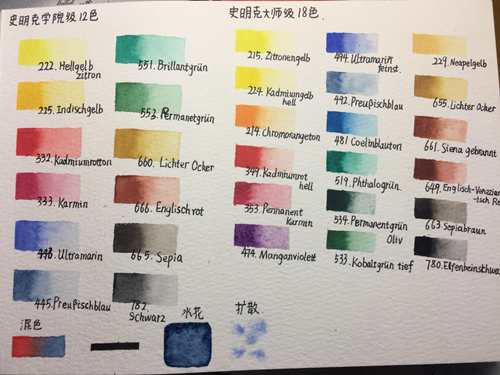 史明克学院级12色
222. Hellgelb
zitron
551. Brillantgrün
225. Indischgelb
553. Permanetgrün
332. Kadmiumrotton
660. Lichter Ocker
333. Karmin
666. Englischrot
446. Ultramarin
665. Sepia
445. Preußischblau
782.
Schwarz
混色
水花
扩散
史明克大师级18色.
215. Zitronengelb
224. Kadmiumgelb
hell
214. Chromorangeton
349. Kadmiumrot
hell
353. Permanent
Karmin
474. Manganviolett
494. Ultramarin
feinst.
492. Preußischblau
481 Coelinblauton
519. Phthalogrün.
534. Permanentgrün
Oliv
533. Kobaltgrün tief
229. Neapelgelb
655. Lichter Ocker
661. Siena gebrannt
649. Englisch-Venezian
-isch Ro
663 Sepiabraun
780. Elfenbeinschwa